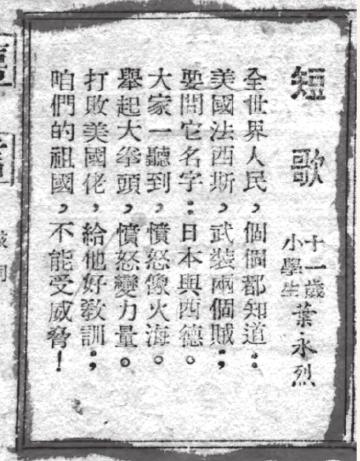 短歌
十一歲
小學生
葉永烈
全世界人民，個個都知道：
美國法西斯，武装兩個賊；
要問它名字：日本與西德。
大家一聽到，憤怒像火海。
舉起大拳頭，憤怒變力量。
打敗美國佬，給他好教訓；
咱們的祖國，不能受威脅！